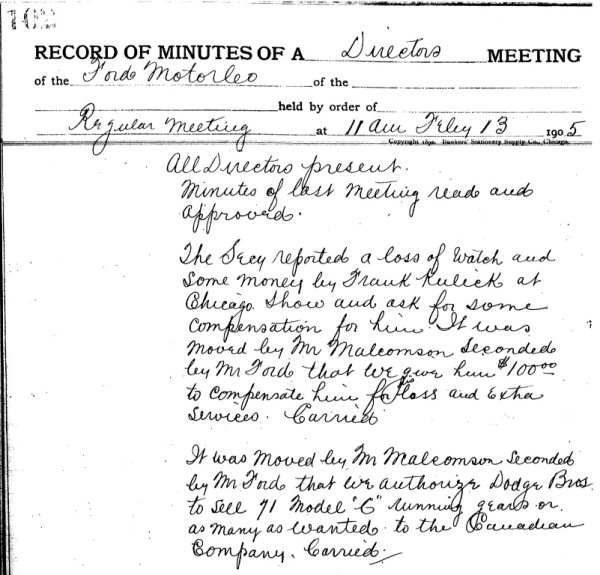 102
RECORD OF MINUTES OF A Directors MEETING
of the Ford Motor Co of the
held by order of
Regular Meeting at 11 am Feby 13 1905
Copyright 1890, Bankers' Stationery Supply Co., Chicago.
All Directors present.
Minutes of last Meeting read and
approved.
The Secy reported a loss of Watch and
some money by Frank Kulick at
Chicago Show and ask for some
compensation for him. It was
moved by Mr Malcomson Seconded
by Mr Ford that we give him $100.00
to compensate him for loss and Extra
Services. Carried
It was Moved by Mr Malcomson Seconded
by Mr Ford that we authorize Dodge Bros.
to sell 71 Model "C" running gears or
as many as wanted to the Canadian
Company. Carried.